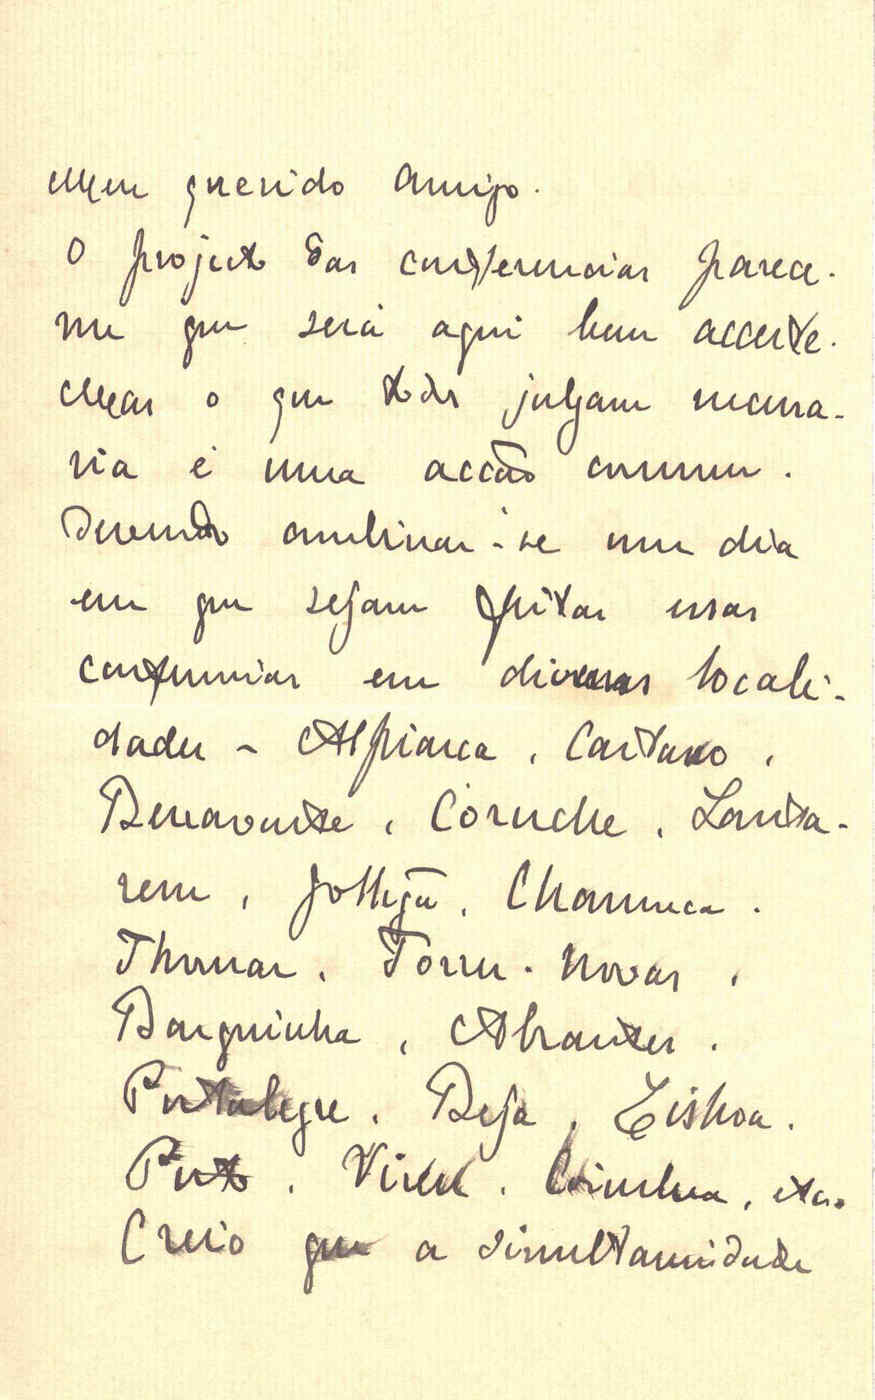 Meu querido Amigo.
O projecto das conferencias parece-
me que será aqui bem acceite.
Mas o que todos julgam necessa-
ria é uma acção commum.
Devendo combinar-se um dia
em que sejam feitas essas
conferencias em diversas locali-
dades – Alpiarça, Cartaxo,
Benavente, Coruche, Santa-
rem, Gollegã, Chamusca.
Thomar, Torres-Novas,
Barquinha, Abrantes.
Portalegre, Beja, Lisboa.
Porto, Vizeu, Coimbra, etc.
Creio que a simultaneidade